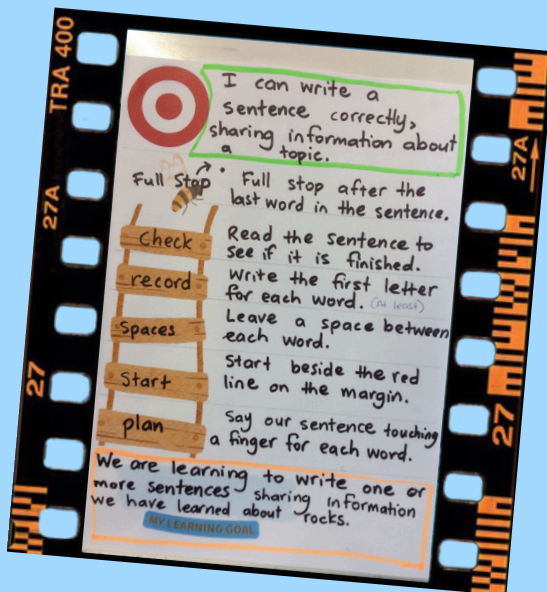 TRA 400
27A
27
I can write a
sentence correctly,
sharing information about
a topic.
Full Stop
Full stop after the
last word in the sentence.
Check
Read the sentence to
see if it is finished.
record
Write the first letter
for each word. (at least)
Spaces
Leave a space between
each word.
Start
Start beside the red
line on the margin.
plan
Say our sentence touching
a finger for each word.
We are learning to write one or
more sentences sharing information
we have learned about rocks.
MY LEARNING GOAL
27A
27